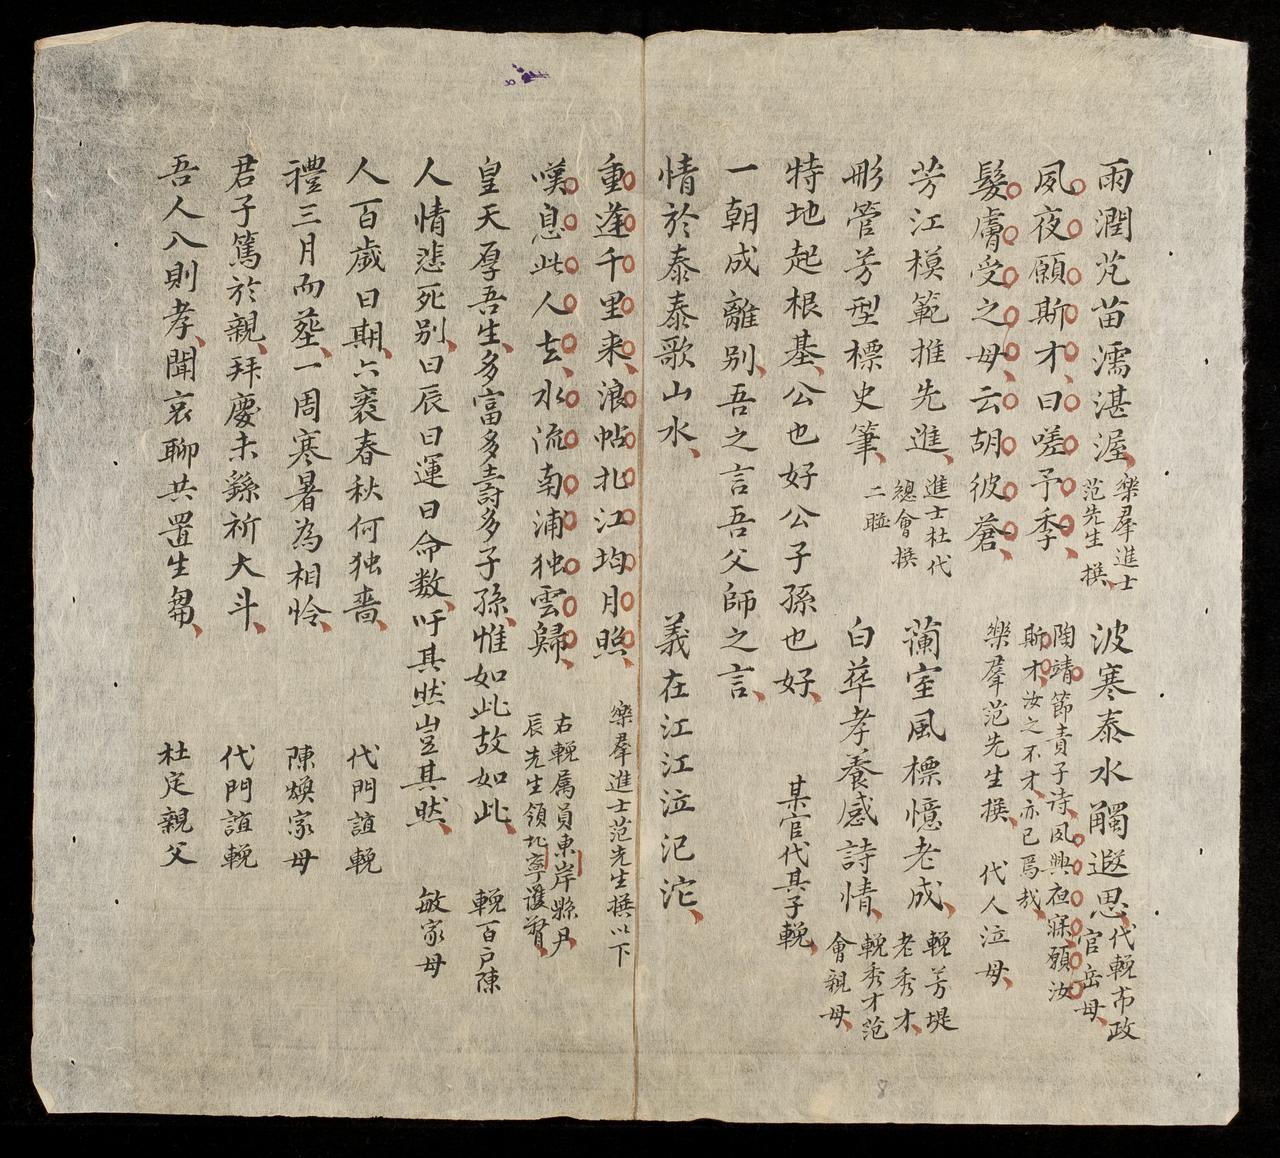 雨潤芃苗濡湛渥
樂羣進士
范先生撰
波寒泰水觸遐思
代輓市政
官岳母
夙夜願斯才曰嗟予季
陶靖節責子诗夙興夜寐願汝
斯才汝之不才亦已焉哉
髮膚受之母云胡彼蒼
樂羣范先生撰
代人泣母
芳江模範推先進
進士杜代
總會撰
二聯
蘭室風標憶老成
輓芳堤
老秀才
彤管芳型標史筆
白華孝養感詩情
輓秀才范
會親母
特地起根基公也好公子孫也好
某官代其子輓
一朝成離别吾之言吾父師之言
情於泰泰歌山水
義在江江泣汜沱
重逢千里来浪帖北江均月照
樂羣進士范先生撰以下
嘆息此人去水流南浦独雲歸
右輓属員東岸縣尹
辰先生領北寧護督
皇天厚吾生多富多壽多子孫惟如此故如此
輓百戸陳
人情悲死别曰辰曰運曰命数吁其然豈其然
敏家母
人百歲曰期六袠春秋何独嗇
代門誼輓
禮三月而塟一周寒暑為相怜
陳煥家母
君子篤於親拜慶未繇祈大斗
代門誼輓
吾人八則孝聞哀聊共置生芻
杜定親父
8